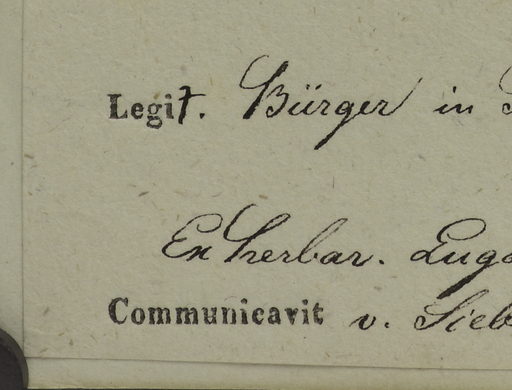 Legit. Bürger in
Ex herbar. Lugd
Communicavit v. Sieb